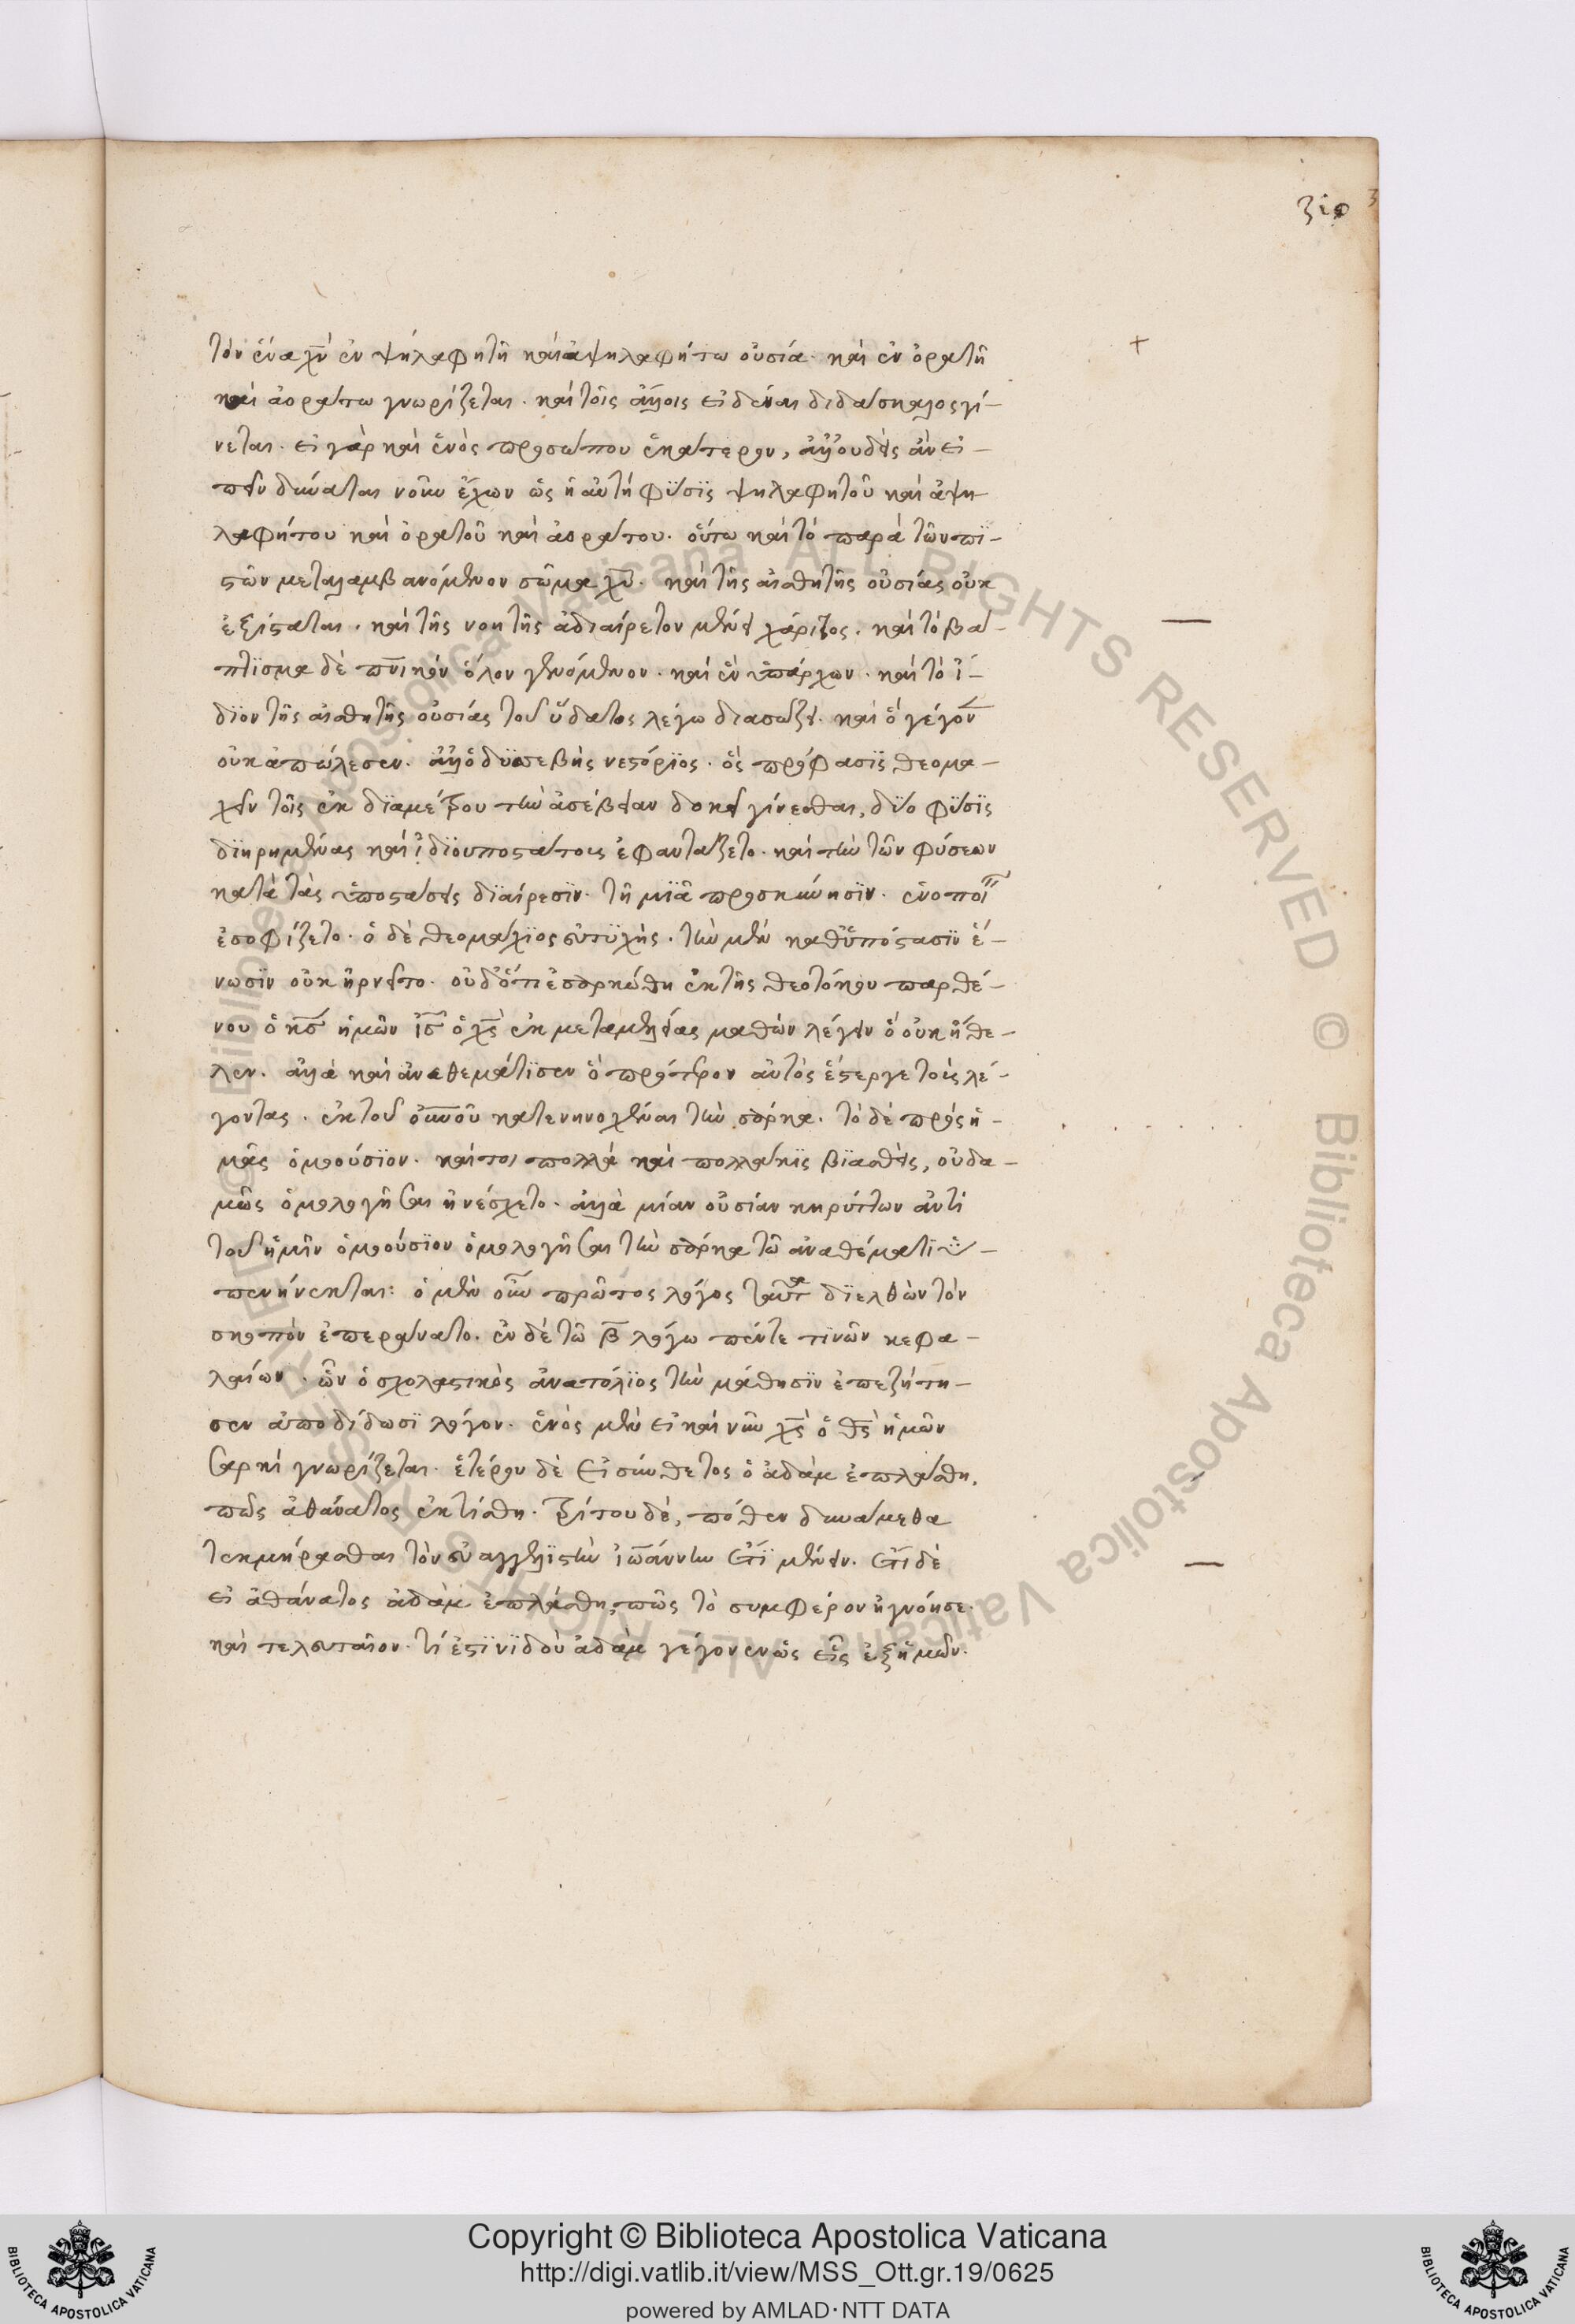 310
τὸν ἕνα χν ἐν ψηλαφητῆ καὶ ἀψηλαφήτω οὐσία. καὶ ἐν ὁρατῆ
καὶ ἀοράτω γνωρίζεται. καὶ τοῖς ἄλλοις εἰδέναι διδάσκαλος γί-
νεται. εἰ γὰρ καὶ ἑνὸς προσώπου ἑκάτερον, ἀλλ' οὐδεὶς ἂν εἰ-
πεῖν δύναται νοῦν ἔχων ὡς ἡ αὐτὴ φύσϊς ψηλαφητοῦ καὶ ἀψη
λαφήτου καὶ ὁρατοῦ καὶ ἀοράτου. οὕτω καὶ τὸ παρὰ τῶν πι-
στῶν μεταλαμβανόμενον σῶμα χυ. καὶ τῆς αἰσθητῆς οὐσίας οὐκ
ἐξίσταται. καὶ τῆς νοητῆς ἀδιαίρετον μένει χάριτος. καὶ τὸ βά-
πτϊσμα δὲ πνικὸν ὅλον γενόμενον. καὶ ἓν ὑπάρχων. καὶ τὸ ἴ-
δϊον τῆς αἰσθητῆς οὐσίας τοῦ ὕδατος λέγω διασώζει. καὶ ὃ γέγον
οὐκ ἀπώλεσεν. ἀλλ' ὁ δϋσσεβὴς νεστόρϊος. ὃς πρόφασϊς θεομα-
χεῖν τοῖς ἐκ δϊαμέτρου τὴν ἀσέβειαν δοκεῖ γίνεσθαι, δύο φύσϊς
δϊῃρημένας καὶ ἰδϊοϋποστάτοις ἐφαντάζετο. καὶ τὴν τῶν φύσεων
κατὰ τὰς ὑποστάσεις δϊαίρεσϊν. τῆ μϊᾶ προσκυνήσϊν. ἑνοποι
ἐσοφίζετο. ὁ δὲ θεομάχϊος εὐτϋχής. τὴν μὲν καθ' ὑπόστασϊν ἕ-
νωσϊν οὐκ ἠρνεῖτο. οὐδ' ὅτι ἐσαρκώθη ἐκ τῆς θεοτόκου παρθέ-
νου ὁ κσ ἡμῶν ισ ὁ χς ἐκ μεταμελείας μαθὼν λέγειν ὃ οὐκ ἤθε-
λεν. ἀλλὰ καὶ ἀναθεμάτϊσεν ὃ πρότερον αὐτὸς ἔστεργε τοὺς λέ-
γοντας. ἐκ τοῦ οὐνοῦ κατενηνοχέναι τὴν σάρκα. τὸ δὲ πρὸς ἡ-
μᾶς ὁμοούσϊον. καίτοι πολλὰ καὶ πολλάκϊς βϊασθεὶς, οὐδα-
μῶς ὁμολογῆσαι ἠνέσχετο. ἀλλὰ μίαν οὐσίαν κηρύττων ἀντὶ
τοῦ ἡμῖν ὁμοούσϊον ὁμολογῆσαι τὴν σάρκα τῶ ἀναθέματϊ ὑ-
πενήνεκται: ὁ μὲν οὖν πρῶτος λόγος ταῦτα δϊελθὼν τὸν
σκοπὸν ἐπεράνατο. ἐν δὲ τῶ β λόγω πέντε τϊνῶν κεφα-
λαίων. ὧν ὁ σχολαστικὸς ἀνατόλϊος τὴν μάθησϊν ἐπεζήτη-
σεν ἀποδίδωσϊ λόγον. ἑνὸς μὲν εἰ καὶ νῦν χς ὁ θς ἡμῶν
σαρκὶ γνωρίζεται. ἑτέρου δὲ εἰ σύνθετος ὁ ἀδὰμ ἐπλάσθη,
πῶς ἀθάνατος ἐκτίσθη. τρίτου δὲ, πόθεν δυνάμεθα
τεκμήρασθαι τὸν εὐαγγελϊστὴν ἰωάννην ἔτϊ μένειν. ἔτϊ δὲ
εἰ ἀθάνατος ἀδὰμ ἐπλάσθη, πῶς τὸ συμφέρον ἠγνόησε.
καὶ τελευταῖον. τί ἐστϊν ἰδοὺ ἀδὰμ γέγονεν ὡς εἷς ἐξ ἡμῶν.
Copyright © Biblioteca Apostolica Vaticana
http://digi.vatlib.it/view/MSS_Ott.gr.19/0625
powered by AMLAD·NTT DATA